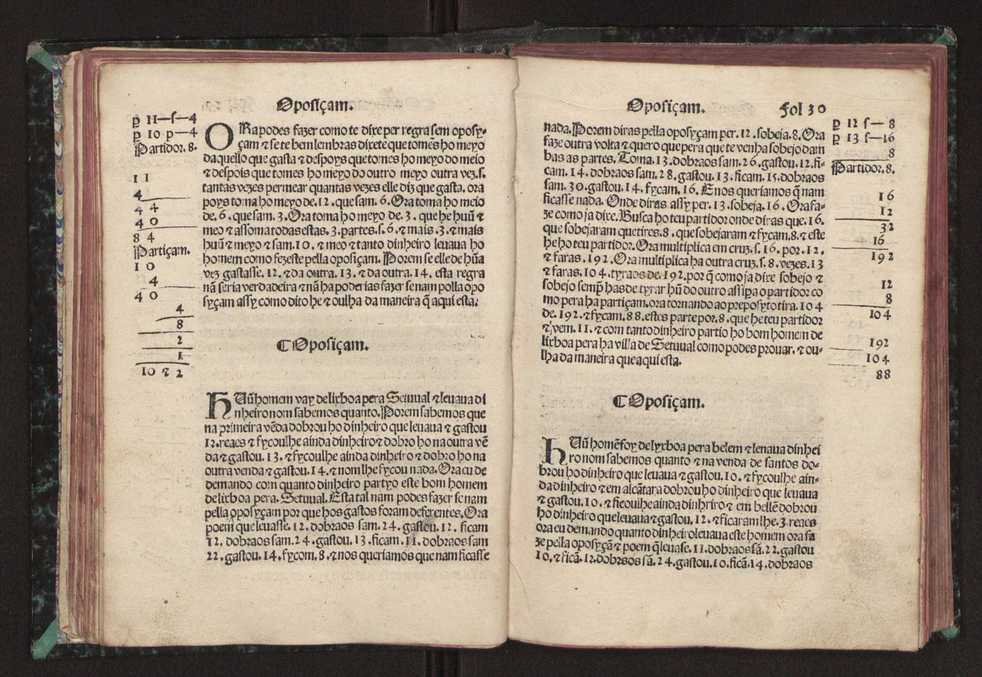 Oposiçam.
p 11—s—4
p 10 p—4
Partidor. 8.
11
4
4 4
4 0
8 4
Partiçam.
1 0
4
4 0
4
8
2
1
10 ⁊ 2
ORa podes fazer como te dixe per regra sem oposy-
çam ⁊ se te bem lembras dixete que tomes ho meyo
da quello que gasta ⁊ despoys que tomes ho meyo do meio
⁊ despois que tomes ho meyo do outro meyo outra vez. s.
tantas vezes per mear quantas vezes elle diz que gasta. ora
poys toma ho meyo de. 12. que sam 6. Ora toma ho meio
de. 6. que sam. 3. Ora toma ho meyo de. 3. que he huũ ⁊
meo ⁊ assoma todas estas. 3. partes. s. 6. ⁊ mais. 3. ⁊ mais
huũ ⁊ meyo ⁊ sam. 10. ⁊ meo ⁊ tanto dinheiro leuaua ho
homem como fezeste pella oposiçam. Porem se elle de hũa
vez gastasse. 12. ⁊ da outra. 13. ⁊ da outra. 14. esta regra
nã seria verdadeira ⁊ nũ ha poderias fazer se nam polla opo
syçam assy como dito he ⁊ oulha da maneira q̃ aqui esta:
Oposiçam.
HUũ homem vay de lixboa pera Setuual ⁊ leuaua di
nheiro nom sabemos quanto. Porem sabemos que
na primeira vẽda dobrou ho dinheiro que leuaua ⁊ gastou
12. reaes ⁊ fycoulhe ainda dinheiro ⁊ dobro ho na outra vẽ
da ⁊ gastou. 13. ⁊ fycoulhe ainda dinheiro ⁊ dobro ho na
outra venda ⁊ gastou. 14. ⁊ nom lhe fycou nada. Ora eu de
demando com quanto dinheiro partyo este bom homem
de lixboa pera. Setuual. Esta tal nam podes fazer se nam
pella oposyçam por que hos gastos foram deferentes. Ora
poem que leuasse. 12. dobraos sam. 24. gastou. 12. ficam
12. dobraos sam. 24. gastou. 13. ficam. 11. dobraos sam
22. gastou. 14. fycom. 8. ⁊ nos queriamos que nam ficasse
Oposiçam. Fol 30
nada. Porem diras pella oposyçam per. 12. sobeja. 8. Ora
faze outra volta ⁊ quero que pera que te venha sobejo dam
bas as partes. Toma. 13. dobraos sam. 26. gastou. 12. fi-
cam. 14. dobraos sam. 28. gastou. 13. ficam. 15. dobraos
sam. 30. gastou. 14. fycam. 16. E nos queriamos q̃ nam
ficasse nada. Onde diras assy per. 13. sobeja. 16. Ora fa-
ze como ja dixe. Busca ho teu partidor onde diras que. 16.
que sobejaram que tires. 8. que sobejaram ⁊ fycam. 8. ⁊ este
he ho teu partidor. Ora multiplica em cruz. s. 16. por. 12.
⁊ faras. 192. Ora multiplica ha outra cruz. s. 8. vezes. 13
⁊ faras. 104. tyraos de. 192. por q̃ como ja dixe sobejo ⁊
sobejo semp̃ has de tyrar hũ do outro assi pa o partidor co
mo pera ha partiçam. ora tornando ao preposyto tira. 104
de. 192. ⁊ fycam. 88. estes parte por. 8. que he teu partidor
⁊ vem. 11. ⁊ com tanto dinheiro partio ho bom homem de
lixboa pera ha villa de Setuual como podes prouar. ⁊ ou-
lha da maneira que aqui esta.
p 12 s—8
p 13 s—16
8
Partidor. 8.
16
12
32
16
192
12
8
104
192
104
88
Oposiçam.
HUũ homẽ foy de lyxboa pera belem ⁊ leuaua dinhei
ro nom sabemos quanto ⁊ na venda de santos do-
brou ho dinheiro que leuaua ⁊ gastou. 10. ⁊ fycoulhe ain-
da dinheiro ⁊ em alcãtara dobrou ho dinheiro que leuaua
⁊ gastou. 10. ⁊ ficoulhe ainda dinhriro ⁊ em bellẽ dobrou
ho dinheiro que leuaua ⁊ gastou. 12. ⁊ ficaram lhe. 3. reaes
ora eu demando quanto dinheiro leuaua este homem ora fa
ze pella oposyçã ⁊ poem q̃ leuase. 11. dobraos sã. 22. gastou
10. ⁊ ficã. 12. dobraos sã. 24. gastou. 10. ficã. 14. dobraos